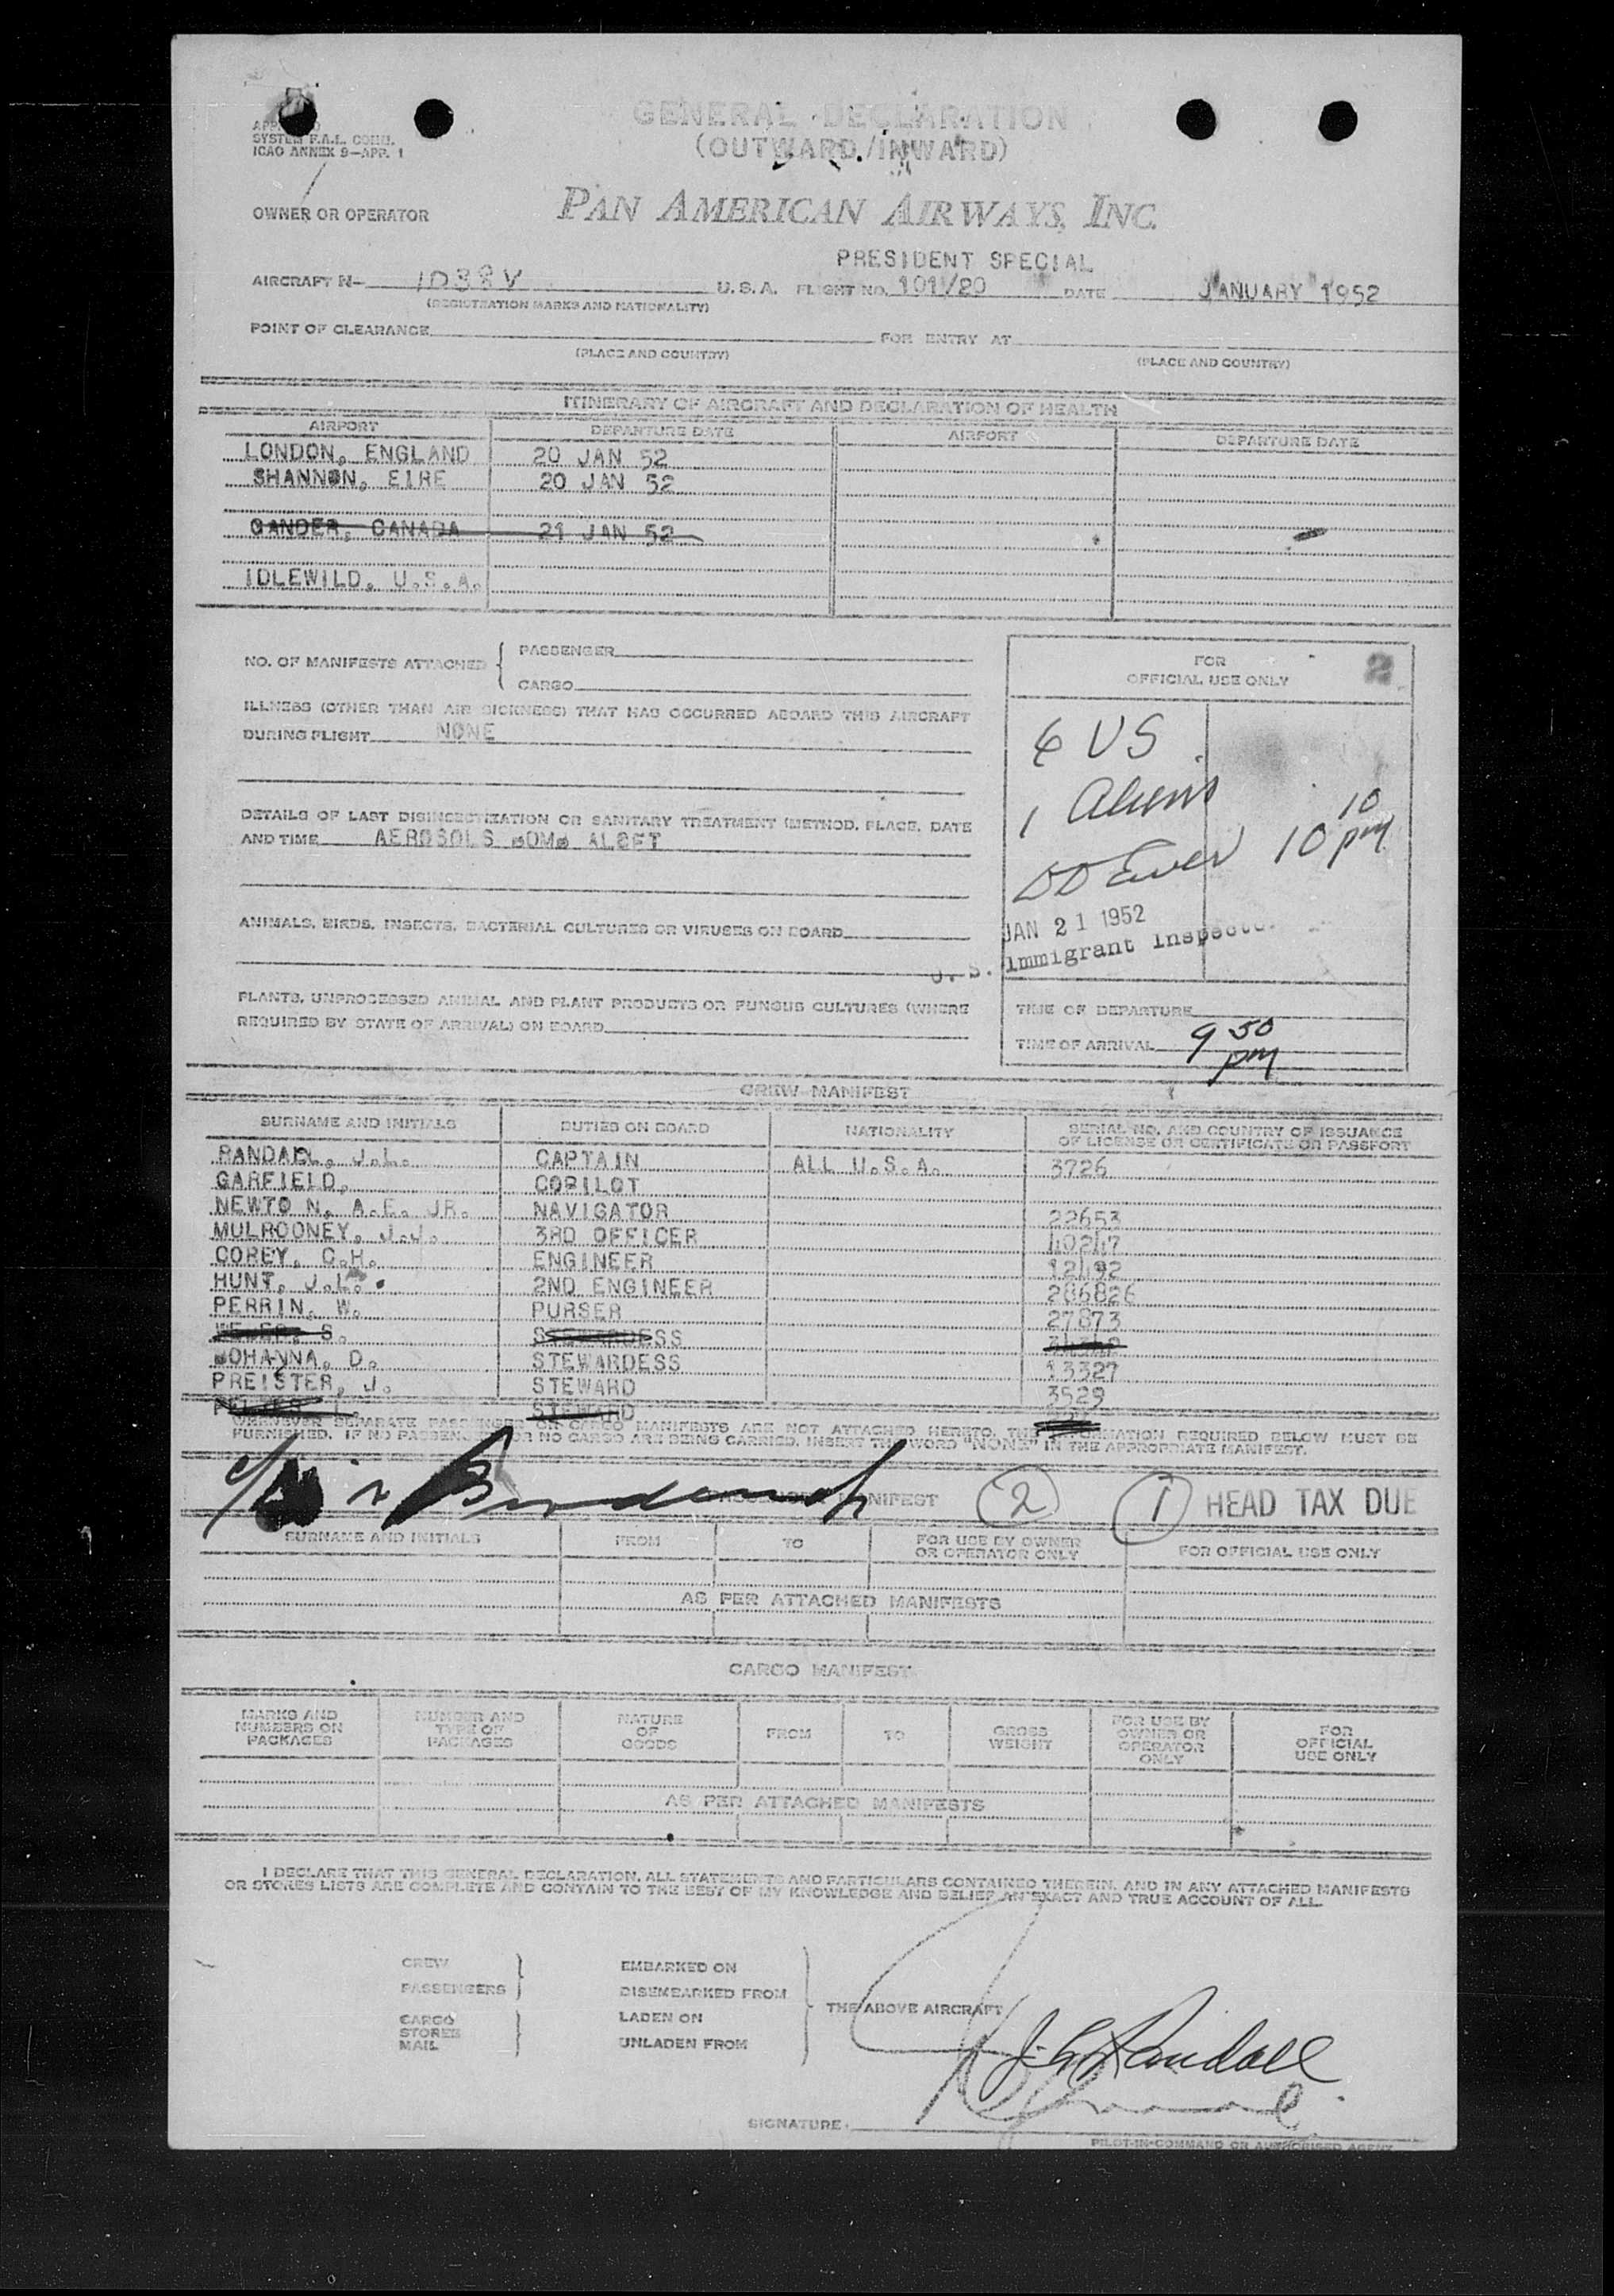 GENERAL DECLARATION
(OUTWARD/INWARD)
SYSTEM F.A.L. COMM.
ICAO ANNEX 9-APP. 1
OWNER OR OPERATOR PAN AMERICAN AIRWAYS, INC.
PRESIDENT SPECIAL
AIRCRAFT N- 1038V U.S.A. FLIGHT NO. 101/20 DATE JANUARY 1952
(REGISTRATION MARKS AND NATIONALITY)
POINT OF CLEARANCE FOR ENTRY AT
(PLACE AND COUNTRY) (PLACE AND COUNTRY)
ITINERARY OF AIRCRAFT AND DECLARATION OF HEALTH
AIRPORT DEPARTURE DATE AIRPORT DEPARTURE DATE
LONDON, ENGLAND 20 JAN 52
SHANNON, EIRE 20 JAN 52
GANDER, CANADA 21 JAN 52
IDLEWILD, U.S.A.
NO. OF MANIFESTS ATTACHED { PASSENGER
CARGO
ILLNESS (OTHER THAN AIR SICKNESS) THAT HAS OCCURRED ABOARD THIS AIRCRAFT
DURING FLIGHT NONE
DETAILS OF LAST DISINSECTIZATION OR SANITARY TREATMENT (METHOD, PLACE, DATE
AND TIME AEROSOLS BOMB ALOFT
ANIMALS, BIRDS, INSECTS, BACTERIAL CULTURES OR VIRUSES ON BOARD
PLANTS, UNPROCESSED ANIMAL AND PLANT PRODUCTS OR FUNGUS CULTURES (WHERE
REQUIRED BY STATE OF ARRIVAL) ON BOARD
FOR
OFFICIAL USE ONLY
6 US
1 Aliens
10 10 pm
JAN 21 1952
U. S. Immigrant Inspector
TIME OF DEPARTURE
TIME OF ARRIVAL 9 50 pm
CREW MANIFEST
SURNAME AND INITIALS DUTIES ON BOARD NATIONALITY SERIAL NO. AND COUNTRY OF ISSUANCE
OF LICENSE OR CERTIFICATE OR PASSPORT
RANDALL, J.L. CAPTAIN ALL U.S.A. 3726
GARFIELD, COPILOT
NEWTO N, A.E. JR. NAVIGATOR 22653
MULROONEY, J.J. 3RD OFFICER 40247
COREY, C.H. ENGINEER 12492
HUNT, J.L. 2ND ENGINEER 286826
PERRIN, W. PURSER 27873
S. STEWARDESS
BOHANNA, D. STEWARDESS 13327
PREISTER, J. STEWARD 3529
STEWARD
WHENEVER SEPARATE PASSENGER OR CARGO MANIFESTS ARE NOT ATTACHED HERETO, THE INFORMATION REQUIRED BELOW MUST BE
FURNISHED. IF NO PASSENGERS OR NO CARGO ARE BEING CARRIED, INSERT THE WORD "NONE" IN THE APPROPRIATE MANIFEST.
MANIFEST 2 1 HEAD TAX DUE
SURNAME AND INITIALS FROM TO FOR USE BY OWNER
OR OPERATOR ONLY FOR OFFICIAL USE ONLY
AS PER ATTACHED MANIFESTS
CARGO MANIFEST
MARKS AND
NUMBERS ON
PACKAGES
NUMBER AND
TYPE OF
PACKAGES
NATURE
OF
GOODS
FROM
TO
GROSS
WEIGHT
FOR USE BY
OWNER OR
OPERATOR
ONLY
FOR
OFFICIAL
USE ONLY
AS PER ATTACHED MANIFESTS
I DECLARE THAT THIS GENERAL DECLARATION, ALL STATEMENTS AND PARTICULARS CONTAINED THEREIN, AND IN ANY ATTACHED MANIFESTS
OR STORES LISTS ARE COMPLETE AND CONTAIN TO THE BEST OF MY KNOWLEDGE AND BELIEF AN EXACT AND TRUE ACCOUNT OF ALL.
CREW EMBARKED ON
PASSENGERS DISEMBARKED FROM
THE ABOVE AIRCRAFT
CARGO LADEN ON
STORES
MAIL UNLADEN FROM
J. L. Randall
SIGNATURE
PILOT-IN-COMMAND OR AUTHORISED AGENT